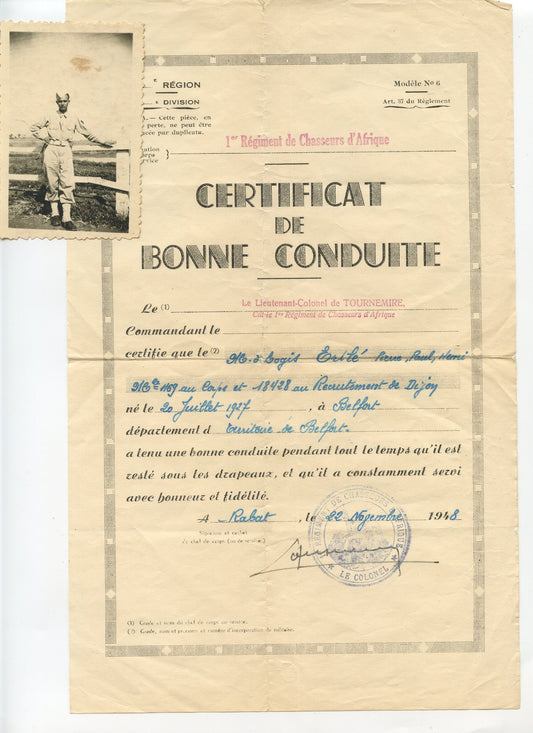 e RÉGION
e DIVISION
Modèle No 6
Art. 37 du Règlement
).— Cette pièce, en
perte, ne peut être
acée par duplicata.
1er Régiment de Chasseurs d'Afrique
ation
orps
service
CERTIFICAT
DE
BONNE CONDUITE
Le (1) Le Lieutenant-Colonel de TOURNEMIRE,
Cdt le 1er Régiment de Chasseurs d'Afrique
Commandant le
certifie que le (2) M-d-Logis Erilé Paul, Henri
Mle 1169 au Corps et 18428 au Recrutement de Dijon
né le 20 Juillet 1927, à Belfort
département d territoire de Belfort-
a tenu une bonne conduite pendant tout le temps qu'il est
resté sous les drapeaux, et qu'il a constamment servi
avec honneur et fidélité.
A Rabat, le 22 Novembre 1948
Signature et cachet
du chef de corps (ou de service)
DE CHASSEURS D'AFRIQUE
* LE COLONEL *
(1) Grade et nom du chef de corps ou service.
(2) Grade, nom et prénoms et numéro d'incorporation du militaire.